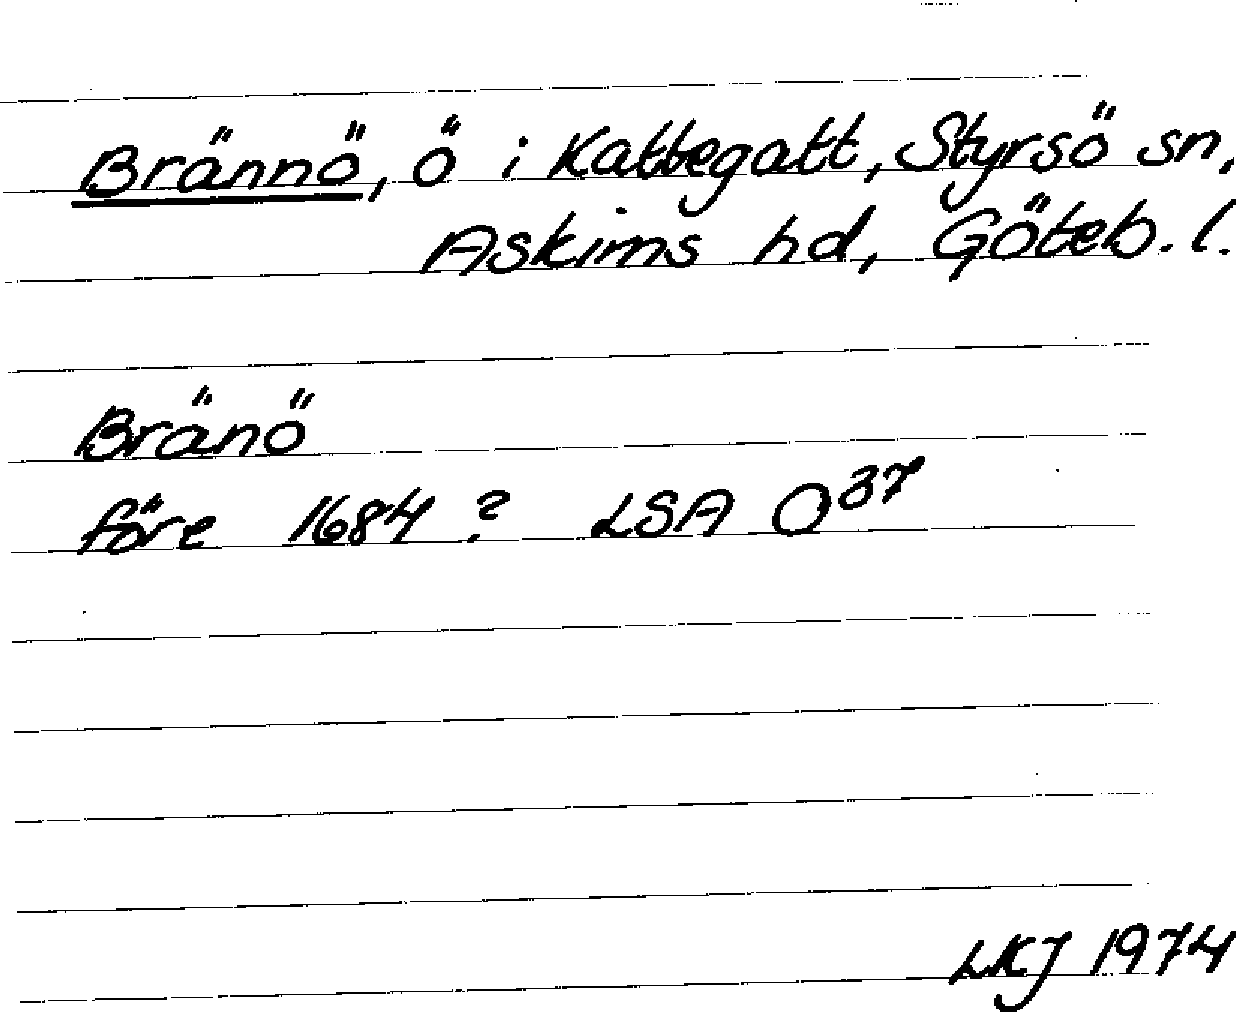 Brännö, ö i Kattegatt, Styrsö sn,
Askims hd, Göteb. l.
Bränö
före 1684 ? LSA O 37
LKJ 1974